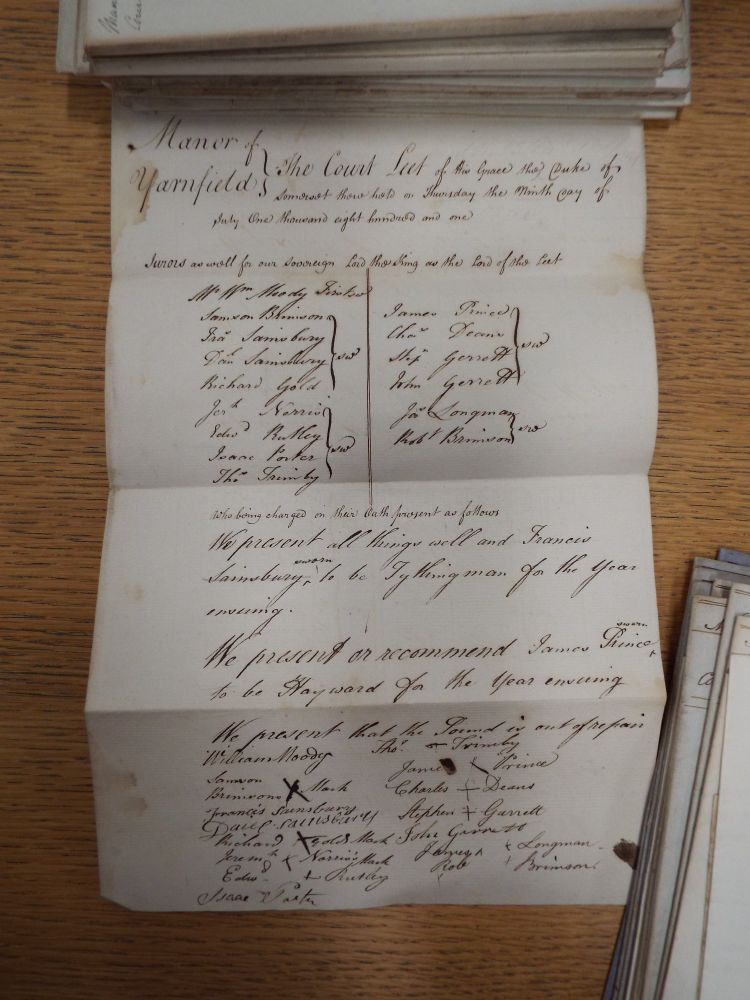 Manor of
Yarnfield } The Court Leet of His Grace the Duke of
Somerset there held on Thursday the Ninth Day of
July One thousand eight hundred and one
Jurors as well for our Sovereign Lord the King as the Lord of the Leet
Mr Wm Moody First sw
Samson Brimson
Fras Sainsbury
Danl Sainsbury
Richard Gold
} sw
Jerh Norris
Edwd Rutley
Isaac Porter
Thos Trimby
} sw
James Prince
Chas Deans
Stepn Gerrett
John Gerrett
} sw
Jas Longman
Robt Brimson
} sw
Who being charged on their Oath present as follows
We present all things well and Francis
Sainsbury sworn to be Tythingman for the Year
ensuing.
We present or recommend James Prince sworn
to be Hayward for the Year ensuing
We present that the Pound is out of repair
William Moody
Samson
Brimson X Mark
Francis Sainsbury
Daul Sainsbury
Richard X Gold Mark
Jeremh X Norris Mark
Edwd + Rutley
Isaac Porter
Thos - Trimby
James X Prince
Charles + Deans
Stephen + Garrett
John Garrett
James + Longman
Rob + Brimson